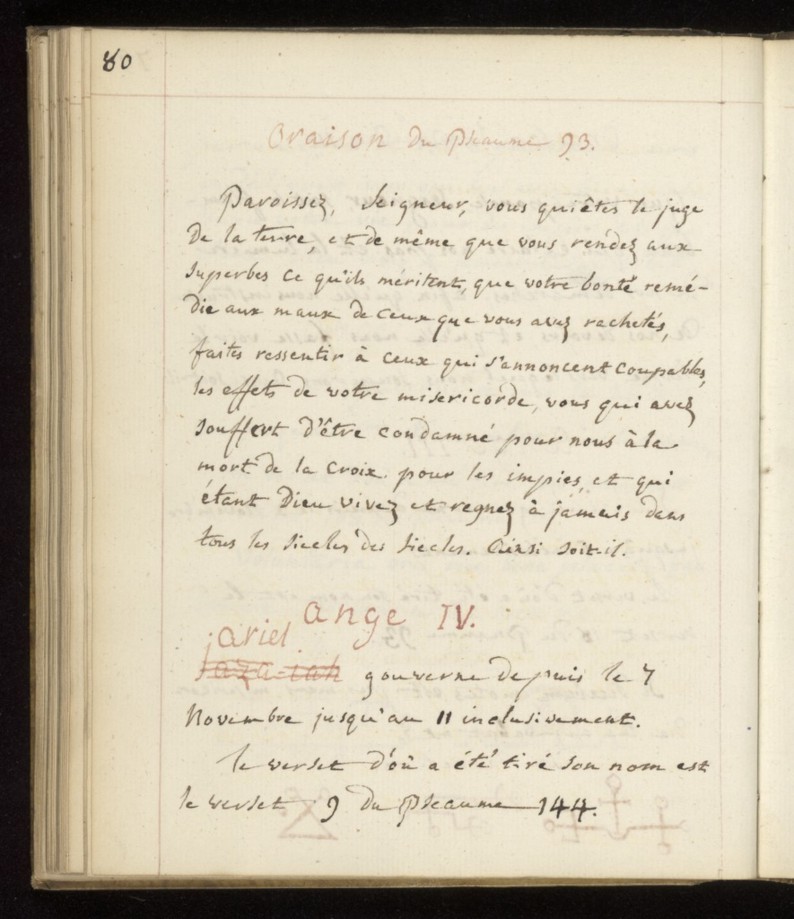 80
Oraison du Pseaume 93.
Paroissez, Seigneur, vous qui êtes le juge
De la terre, et de même que vous rendez aux
Superbes ce qu'ils méritent, que votre bonté remé-
die aux maux de ceux que vous avez rachetés,
faites ressentir à ceux qui s'annoncent coupables,
les effets de votre misericorde, vous qui avez
souffert d'être condamné pour nous à la
mort de la Croix. pour les impies, et qui
étant Dieu vivez et regnez à jamais dans
tous les siecles des siecles. Ainsi soit-il.
ange IV.
jariel
gouverne depuis le 7
Novembre jusqu'au 11 inclusivement.
le verset d'où a été tiré son nom est
le verset 9 du Pseaume 144.